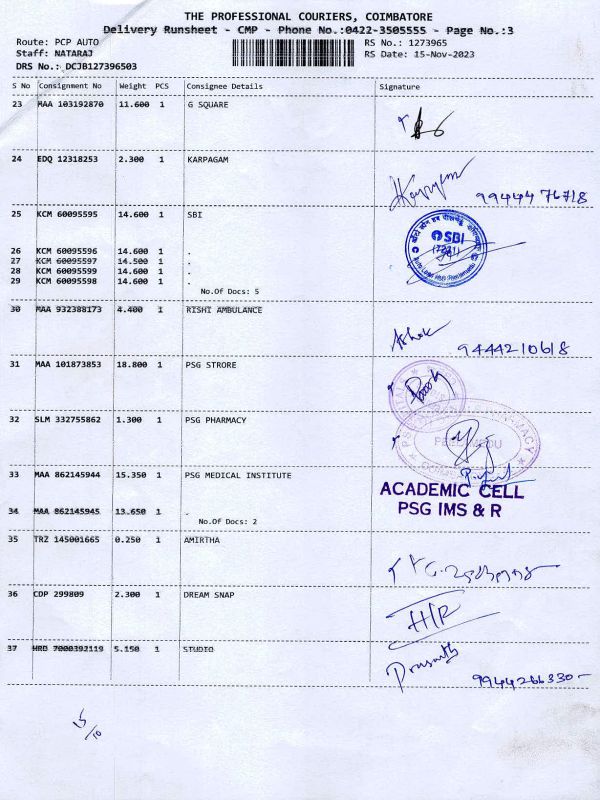 THE PROFESSIONAL COURIERS, COIMBATORE
Delivery Runsheet - CMP - Phone No.:0422-3505555 - Page No.:3
Route: PCP AUTO
Staff: NATARAJ
DRS No.: DCJB127396503
RS No.: 1273965
RS Date: 15-Nov-2023
S No Consignment No Weight PCS Consignee Details Signature
23 MAA 103192870 11.600 1 G SQUARE
24 EDQ 12318253 2.300 1 KARPAGAM
99444 76718
25 KCM 60095595 14.600 1 SBI
SBI
26 KCM 60095596 14.600 1 .
27 KCM 60095597 14.500 1 .
28 KCM 60095599 14.600 1 .
29 KCM 60095598 14.600 1 .
No.Of Docs: 5
30 MAA 932388173 4.400 1 RISHI AMBULANCE
Ashok 9444210618
31 MAA 101873853 18.800 1 PSG STRORE
32 SLM 332755862 1.300 1 PSG PHARMACY
33 MAA 862145944 15.350 1 PSG MEDICAL INSTITUTE
ACADEMIC CELL
PSG IMS & R
34 MAA 862145945 13.650 1 .
No.Of Docs: 2
35 TRZ 145001665 0.250 1 AMIRTHA
36 CDP 299809 2.300 1 DREAM SNAP
37 HRD 7000392119 5.150 1 STUDIO
Prasanth 9944266330-